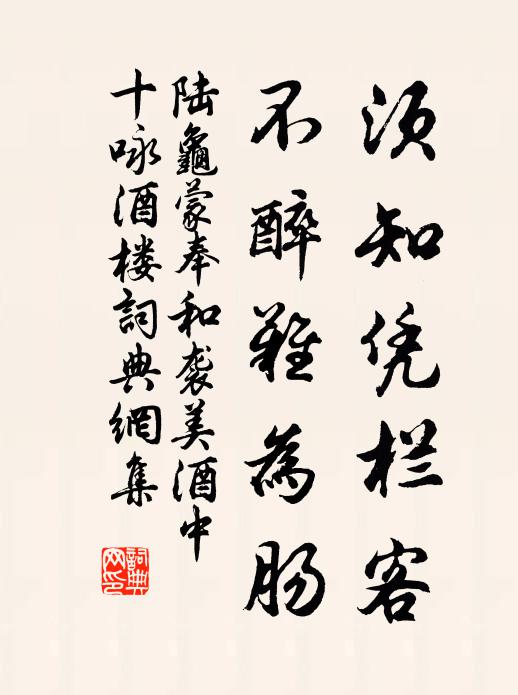 须知凭栏客
不醉难為肠
陆龜蒙奉和袭美酒中
十咏酒楼詞典網集
詞典
网印